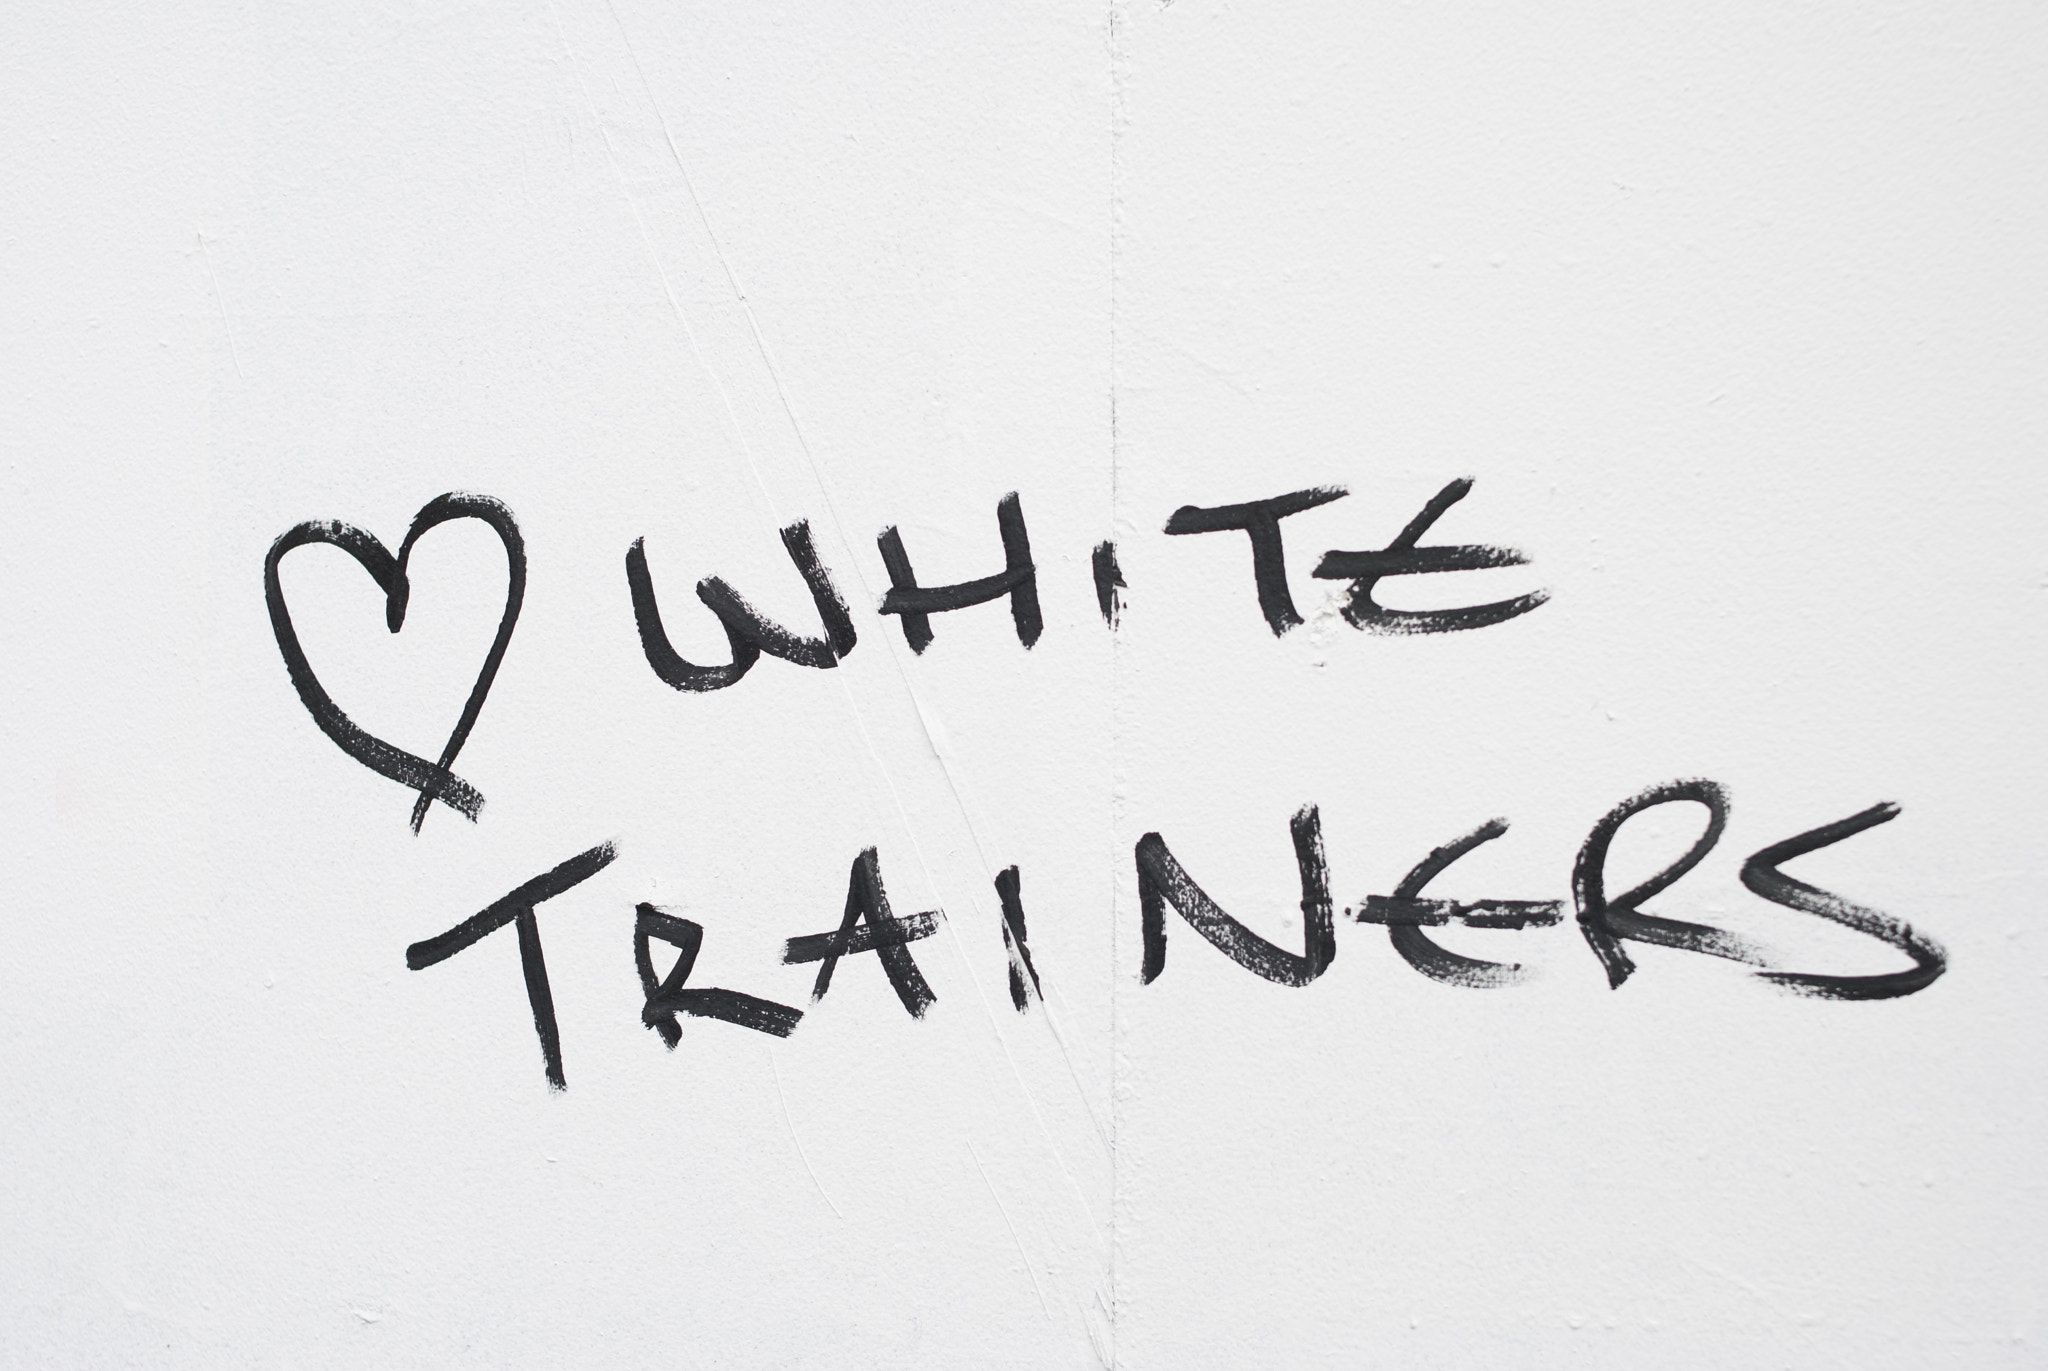 ♡ WHITE
TRAINERS